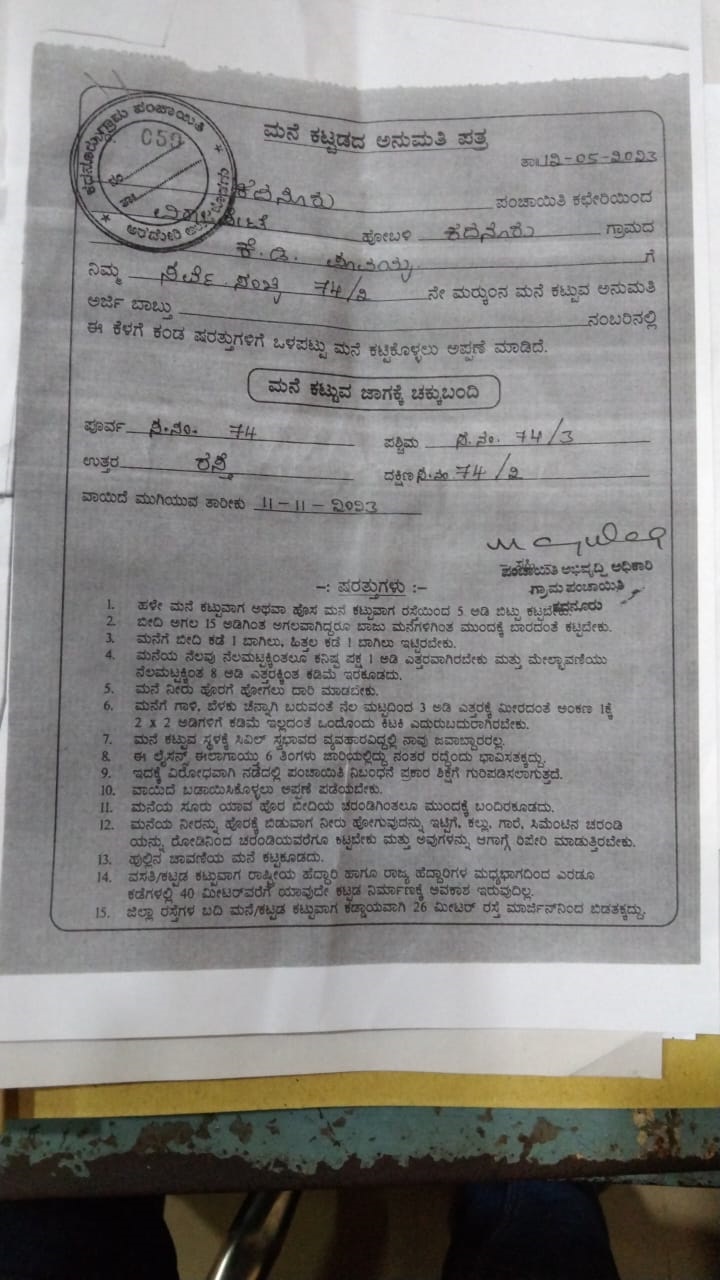 ಮನೆ ಕಟ್ಟಡದ ಅನುಮತಿ ಪತ್ರ
059
ತಾ. 12-05-2023
ಕೆದನೂರು ಪಂಚಾಯಿತಿ ಕಛೇರಿಯಿಂದ
ಹೋಬಳಿ ಕದನೂರು ಗ್ರಾಮದ
ಕೆ. ಡಿ. ಗೆ
ನಿಮ್ಮ ಸರ್ವೆ ಸಂಖ್ಯೆ 74/2 ನೇ ಮರ್‍ಕುಂನ ಮನೆ ಕಟ್ಟುವ ಅನುಮತಿ
ಅರ್ಜಿ ಬಾಬ್ತು ನಂಬರಿನಲ್ಲಿ
ಈ ಕೆಳಗೆ ಕಂಡ ಷರತ್ತುಗಳಿಗೆ ಒಳಪಟ್ಟು ಮನೆ ಕಟ್ಟಿಕೊಳ್ಳಲು ಅಪ್ಪಣೆ ಮಾಡಿದೆ.
ಮನೆ ಕಟ್ಟುವ ಜಾಗಕ್ಕೆ ಚಕ್ಕುಬಂದಿ
ಪೂರ್ವ ಸ.ನಂ. 74 ಪಶ್ಚಿಮ ಸ.ನಂ. 74/3
ಉತ್ತರ ರಸ್ತೆ ದಕ್ಷಿಣ ಸ.ನಂ 74/2
ವಾಯಿದೆ ಮುಗಿಯುವ ತಾರೀಕು 11-11-2023
ಪಂಚಾಯಿತಿ ಅಭಿವೃದ್ಧಿ ಅಧಿಕಾರಿ
ಗ್ರಾಮ ಪಂಚಾಯಿತಿ
ಕದನೂರು
-: ಷರತ್ತುಗಳು :-
1. ಹಳೇ ಮನೆ ಕಟ್ಟುವಾಗ ಅಥವಾ ಹೊಸ ಮನೆ ಕಟ್ಟುವಾಗ ರಸ್ತೆಯಿಂದ 5 ಅಡಿ ಬಿಟ್ಟು ಕಟ್ಟಬೇಕು.
2. ಬೀದಿ ಅಗಲ 15 ಅಡಿಗಿಂತ ಅಗಲವಾಗಿದ್ದರೂ ಬಾಜು ಮನೆಗಳಿಗಿಂತ ಮುಂದಕ್ಕೆ ಬಾರದಂತೆ ಕಟ್ಟಬೇಕು.
3. ಮನೆಗೆ ಬೀದಿ ಕಡೆ 1 ಬಾಗಿಲು, ಹಿತ್ತಲ ಕಡೆ 1 ಬಾಗಿಲು ಇಟ್ಟಿರಬೇಕು.
4. ಮನೆಯ ನೆಲವು ನೆಲಮಟ್ಟಕ್ಕಿಂತಲೂ ಕನಿಷ್ಠ ಪಕ್ಷ 1 ಅಡಿ ಎತ್ತರವಾಗಿರಬೇಕು ಮತ್ತು ಮೇಲ್ಛಾವಣಿಯು
ನೆಲಮಟ್ಟಕ್ಕಿಂತ 8 ಅಡಿ ಎತ್ತರಕ್ಕಿಂತ ಕಡಿಮೆ ಇರಕೂಡದು.
5. ಮನೆ ನೀರು ಹೊರಗೆ ಹೋಗಲು ದಾರಿ ಮಾಡಬೇಕು.
6. ಮನೆಗೆ ಗಾಳಿ, ಬೆಳಕು ಚೆನ್ನಾಗಿ ಬರುವಂತೆ ನೆಲ ಮಟ್ಟದಿಂದ 3 ಅಡಿ ಎತ್ತರಕ್ಕೆ ಮೀರದಂತೆ ಅಂಕಣ 1ಕ್ಕೆ
2 x 2 ಅಡಿಗಳಿಗೆ ಕಡಿಮೆ ಇಲ್ಲದಂತೆ ಒಂದೊಂದು ಕಿಟಕಿ ಎದುರುಬದುರಾಗಿರಬೇಕು.
7. ಮನೆ ಕಟ್ಟುವ ಸ್ಥಳಕ್ಕೆ ಸಿವಿಲ್ ಸ್ವಭಾವದ ವ್ಯವಹಾರವಿದ್ದಲ್ಲಿ ನಾವು ಜವಾಬ್ದಾರರಲ್ಲ.
8. ಈ ಲೈಸನ್ಸ್ ಈಲಾಗಾಯ್ತು 6 ತಿಂಗಳು ಜಾರಿಯಲ್ಲಿದ್ದು ನಂತರ ರದ್ದೆಂದು ಭಾವಿಸತಕ್ಕದ್ದು.
9. ಇದಕ್ಕೆ ವಿರೋಧವಾಗಿ ನಡೆದಲ್ಲಿ ಪಂಚಾಯಿತಿ ನಿಬಂಧನೆ ಪ್ರಕಾರ ಶಿಕ್ಷೆಗೆ ಗುರಿಪಡಿಸಲಾಗುತ್ತದೆ.
10. ವಾಯಿದೆ ಬಡಾಯಿಸಿಕೊಳ್ಳಲು ಅಪ್ಪಣೆ ಪಡೆಯಬೇಕು.
11. ಮನೆಯ ಸೂರು ಯಾವ ಹೊರ ಬೀದಿಯ ಚರಂಡಿಗಿಂತಲೂ ಮುಂದಕ್ಕೆ ಬಂದಿರಕೂಡದು.
12. ಮನೆಯ ನೀರನ್ನು ಹೊರಕ್ಕೆ ಬಿಡುವಾಗ ನೀರು ಹೋಗುವುದನ್ನು ಇಟ್ಟಿಗೆ, ಕಲ್ಲು, ಗಾರೆ, ಸಿಮೆಂಟಿನ ಚರಂಡಿ
ಯನ್ನು ರೋಡಿನಿಂದ ಚರಂಡಿಯವರೆಗೂ ಕಟ್ಟಬೇಕು ಮತ್ತು ಅವುಗಳನ್ನು ಆಗಾಗ್ಗೆ ರಿಪೇರಿ ಮಾಡುತ್ತಿರಬೇಕು.
13. ಹುಲ್ಲಿನ ಚಾವಣಿಯ ಮನೆ ಕಟ್ಟಕೂಡದು.
14. ವಸತಿ/ಕಟ್ಟಡ ಕಟ್ಟುವಾಗ ರಾಷ್ಟ್ರೀಯ ಹೆದ್ದಾರಿ ಹಾಗೂ ರಾಜ್ಯ ಹೆದ್ದಾರಿಗಳ ಮಧ್ಯಭಾಗದಿಂದ ಎರಡೂ
ಕಡೆಗಳಲ್ಲಿ 40 ಮೀಟರ್‌ವರೆಗೆ ಯಾವುದೇ ಕಟ್ಟಡ ನಿರ್ಮಾಣಕ್ಕೆ ಅವಕಾಶ ಇರುವುದಿಲ್ಲ.
15. ಜಿಲ್ಲಾ ರಸ್ತೆಗಳ ಬದಿ ಮನೆ/ಕಟ್ಟಡ ಕಟ್ಟುವಾಗ ಕಡ್ಡಾಯವಾಗಿ 26 ಮೀಟರ್ ರಸ್ತೆ ಮಾರ್ಜಿನ್‌ನಿಂದ ಬಿಡತಕ್ಕದ್ದು.